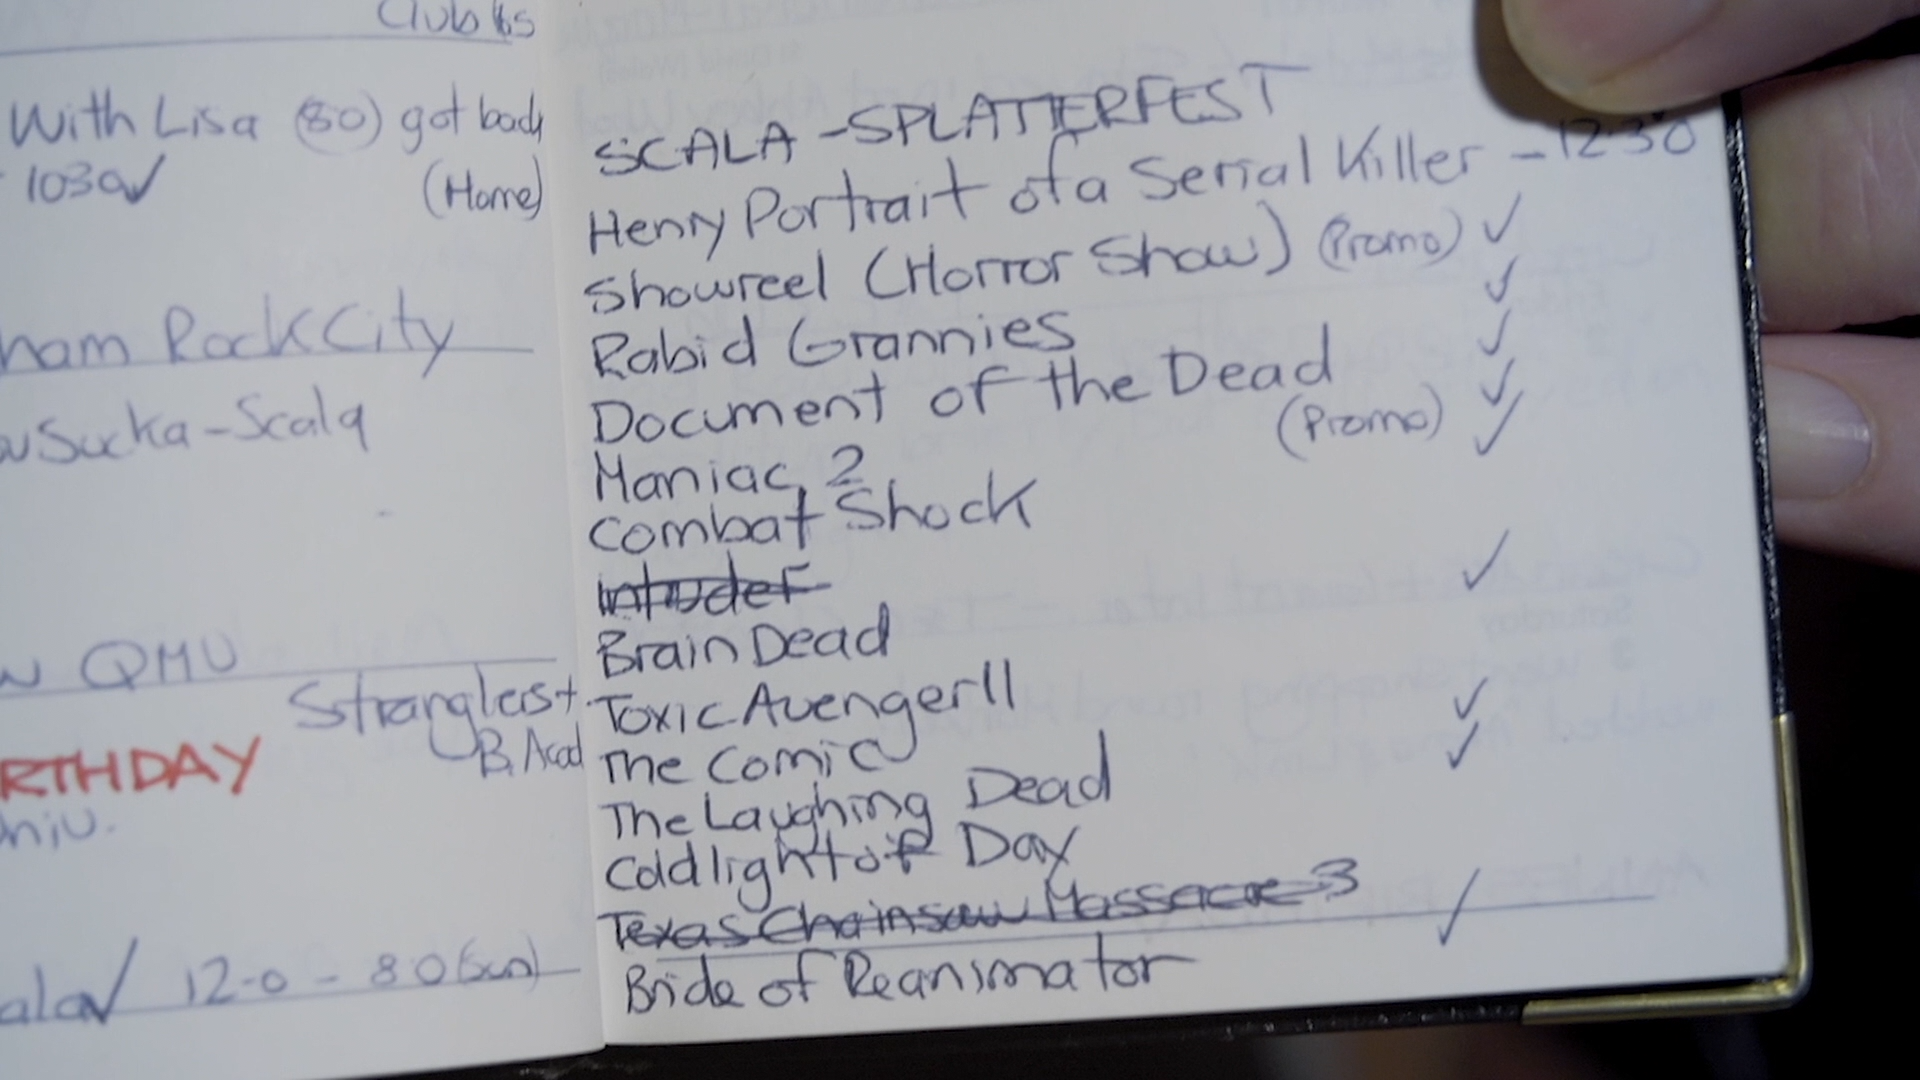 Club
With Lisa (80) got back
1030
(Home)
ham Rock City
Sucka-Scala
QMU
Stranglers+
B. Acad
RTHDAY
niv.
ala✓ 12-0 - 80 (sun)
SCALA - SPLATTERFEST
Henry Portrait of a Serial Killer - 12-30
Showreel (Horror Show) (Promo) ✓
Rabid Grannies ✓
Document of the Dead ✓
Maniac 2 (Promo) ✓
Combat Shock ✓
Intruder
Brain Dead ✓
Toxic Avenger II
The Comic ✓
The Laughing Dead ✓
Cold light of Day
Texas Chainsaw Massacre 3
Bride of Reanimator ✓